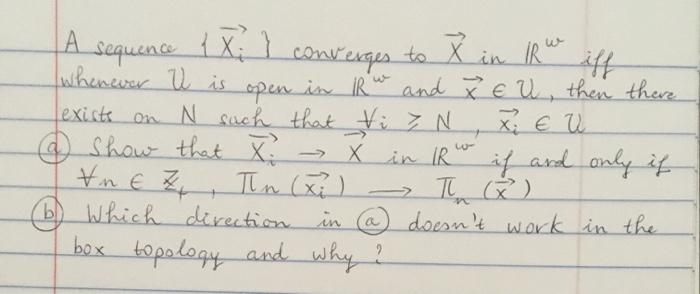 A sequence { X⃗i } converges to X⃗ in ℝ^ω iff
whenever U is open in ℝ^ω and x⃗ ∈ U, then there
exists on N such that ∀i ≥ N, x⃗i ∈ U
(a) Show that X⃗i → X⃗ in ℝ^ω if and only if
∀n ∈ ℤ+, πn (x⃗i) → πn (x⃗)
(b) Which direction in (a) doesn't work in the
box topology and why?